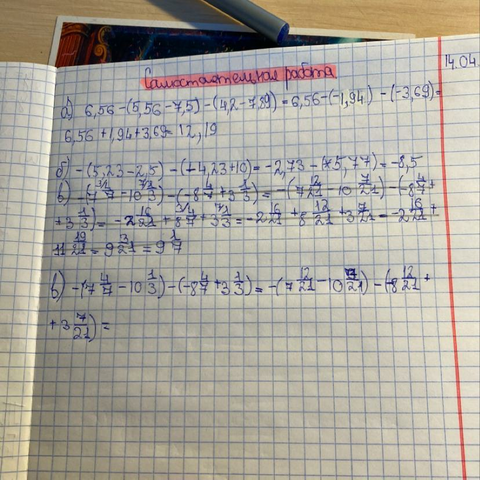 14.04
Самостоятельная работа
а) 6,56-(5,56-7,5)-(4,2-7,89)=6,56-(-1,94)-(-3,69)=
6,56+1,94+3,69=12,19
б) -(5,23-2,5)-(-4,23+10)=-2,73-(+5,77)=-8,5
в) -(7 4/7-10 1/3)-(-8 4/7+3 1/3)=-(7 12/21-10 7/21)-(-8 4/7+
+3 1/3)=-2 16/21+8 4/7+3 1/3=-2 16/21+8 12/21+3 7/21=-2 16/21+
11 19/21=9 3/21=9 1/7
в) -(7 4/7-10 1/3)-(-8 4/7+3 1/3)=-(7 12/21-10 7/21)-(-8 12/21+
+3 7/21)=